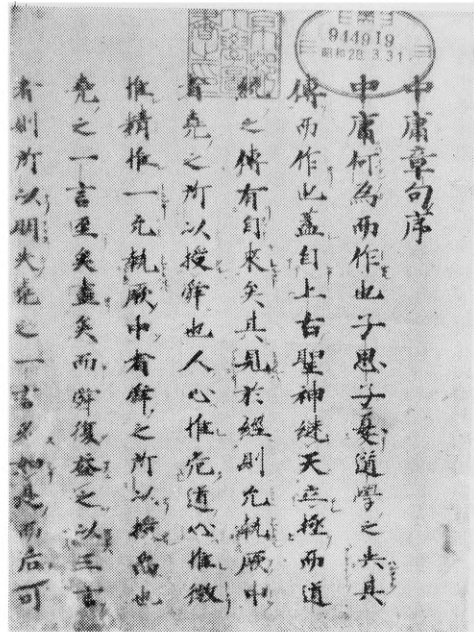 944919
昭和28.3.31
中庸章句序
中庸何為而作也子思子憂道學之失其
傳而作也蓋自上古聖神繼天立極而道
統之傳有自來矣其見於經則允執厥中
者堯之所以授舜也人心惟危道心惟微
惟精惟一允執厥中者舜之所以授禹也
堯之一言至矣盡矣而舜復益之以三言
者則所以明夫堯之一言必如是而后可